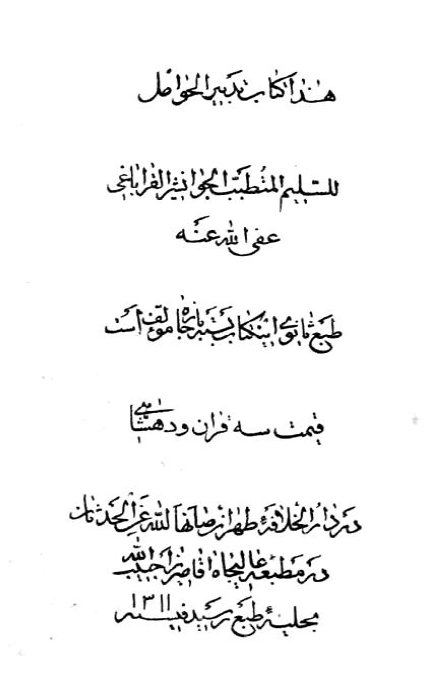 هذا کتاب تدبیر الحوامل
للسلیم المتطبب الجوانشیر القراباغی
عفی الله عنه
طبع ثانوی اینکتاب بسته باره جا مؤلف است
قیمت سه قران و دهشاهی
در دار الخلافهٔ طهران صانها الله عن الحدثان
در مطبعه عالیجاه اقا میرزا حبیب الله
بحلیهٔ طبع رسید فی سنه ۱۳۱۱